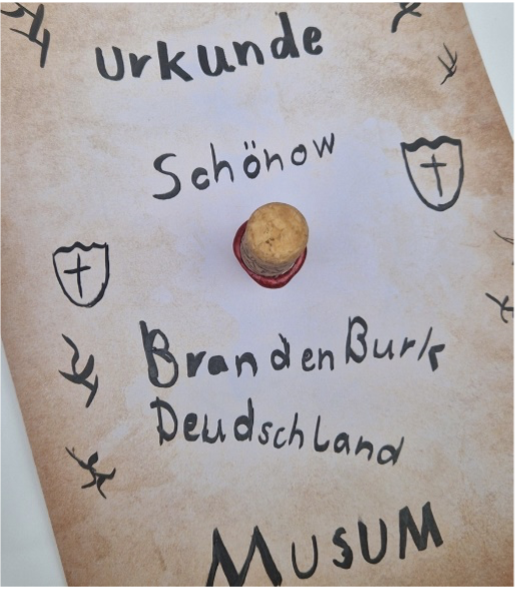 Urkunde
Schönow
BrandenBurk
Deudschland
MUSUM